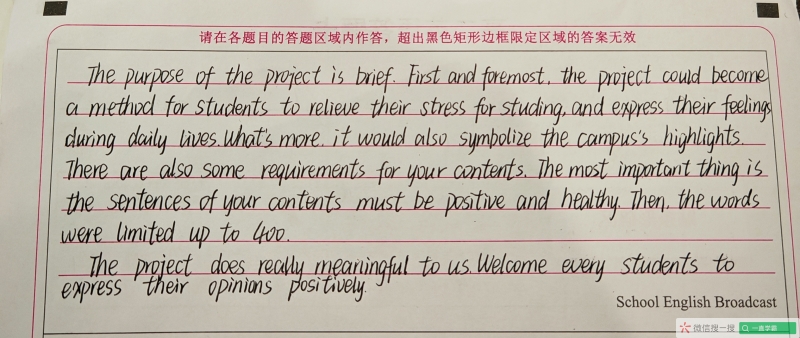 请在各题目的答题区域内作答，超出黑色矩形边框限定区域的答案无效
The purpose of the project is brief. First and foremost, the project could become
a method for students to relieve their stress for studing, and express their feelings
during daily lives. What's more, it would also symbolize the campus's highlights.
There are also some requirements for your contents. The most important thing is
the sentences of your contents must be positive and healthy. Then, the words
were limited up to 400.
The project does really meaningful to us. Welcome every students to
express their opinions positively.
School English Broadcast
微信搜一搜 一直学霸